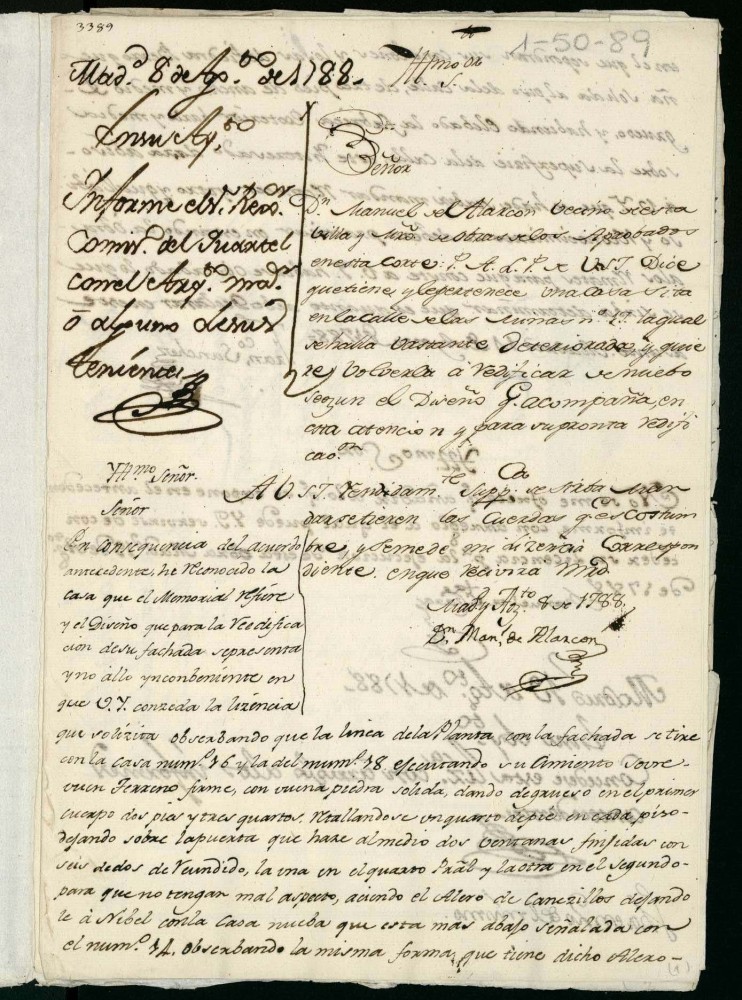 3389
1-50-89
Mad.d 8 de Ag.to de 1788.
En su Ay.to
Informe el S.r Rexor.
Comis.o del Quartel
con el Arq.to mai.r
ó alguno de sus
thenientes
Yll.mo S.or
Señor
D.n Manuel de Alarcon vecino de esta
Villa y Mro. de obras de los Aprobados
en esta Corte: P. A. L. P. de V.S.I. Dice
que tiene y le pertenece una Casa sita
en la calle de las Minas n.o 17. la qual
se halla bastante deteriorada, y quie
re volverla á redificar de nuebo
segun el Diseño q.e acompaña, en
esta atencion y para su pronta redifi
cao.on
A V.S.I. rendidam.te Supp.ca se sirba man
dar se tieren las Cuerdas q.e es Costum
bre, y se me de mi lizencia Correspon
diente. en que recivira mrd
Mad.d y Ag.to 8 de 1788.
D.n Man.l de Alarcon
Yll.mo Señor.
Señor
En consequencia del acuerdo
antecedente, he reconocido la
casa que el Memorial refiere
y el Diseño que para la reedifica
cion de su fachada representa
y no allo ynconbeniente en
que V.Y. conzeda la lizencia
que solizita obserbando que la linea de la Planta con la fachada se tire
con la casa num.o 16 y la del num.o 18 ejecutando su Cimiento sovre
buen terreno firme, con buena piedra solida, dando de grueso en el primer
cuerpo dos pies y tres quartos. Retallandose un quarto de pie en cada piso-
dejando sobre la puerta que haze al medio dos bentanas, finjidas con
seis dedos de reundido, la una en el quarto Pral y la otra en el segundo-
para que no tengan mal aspecto, aciendo el Alero de Canezillos dejando
le á Nibel con la Casa nueba que esta mas abajo señalada con
el num.o 14. obserbando la misma forma, que tiene dicho Alero-